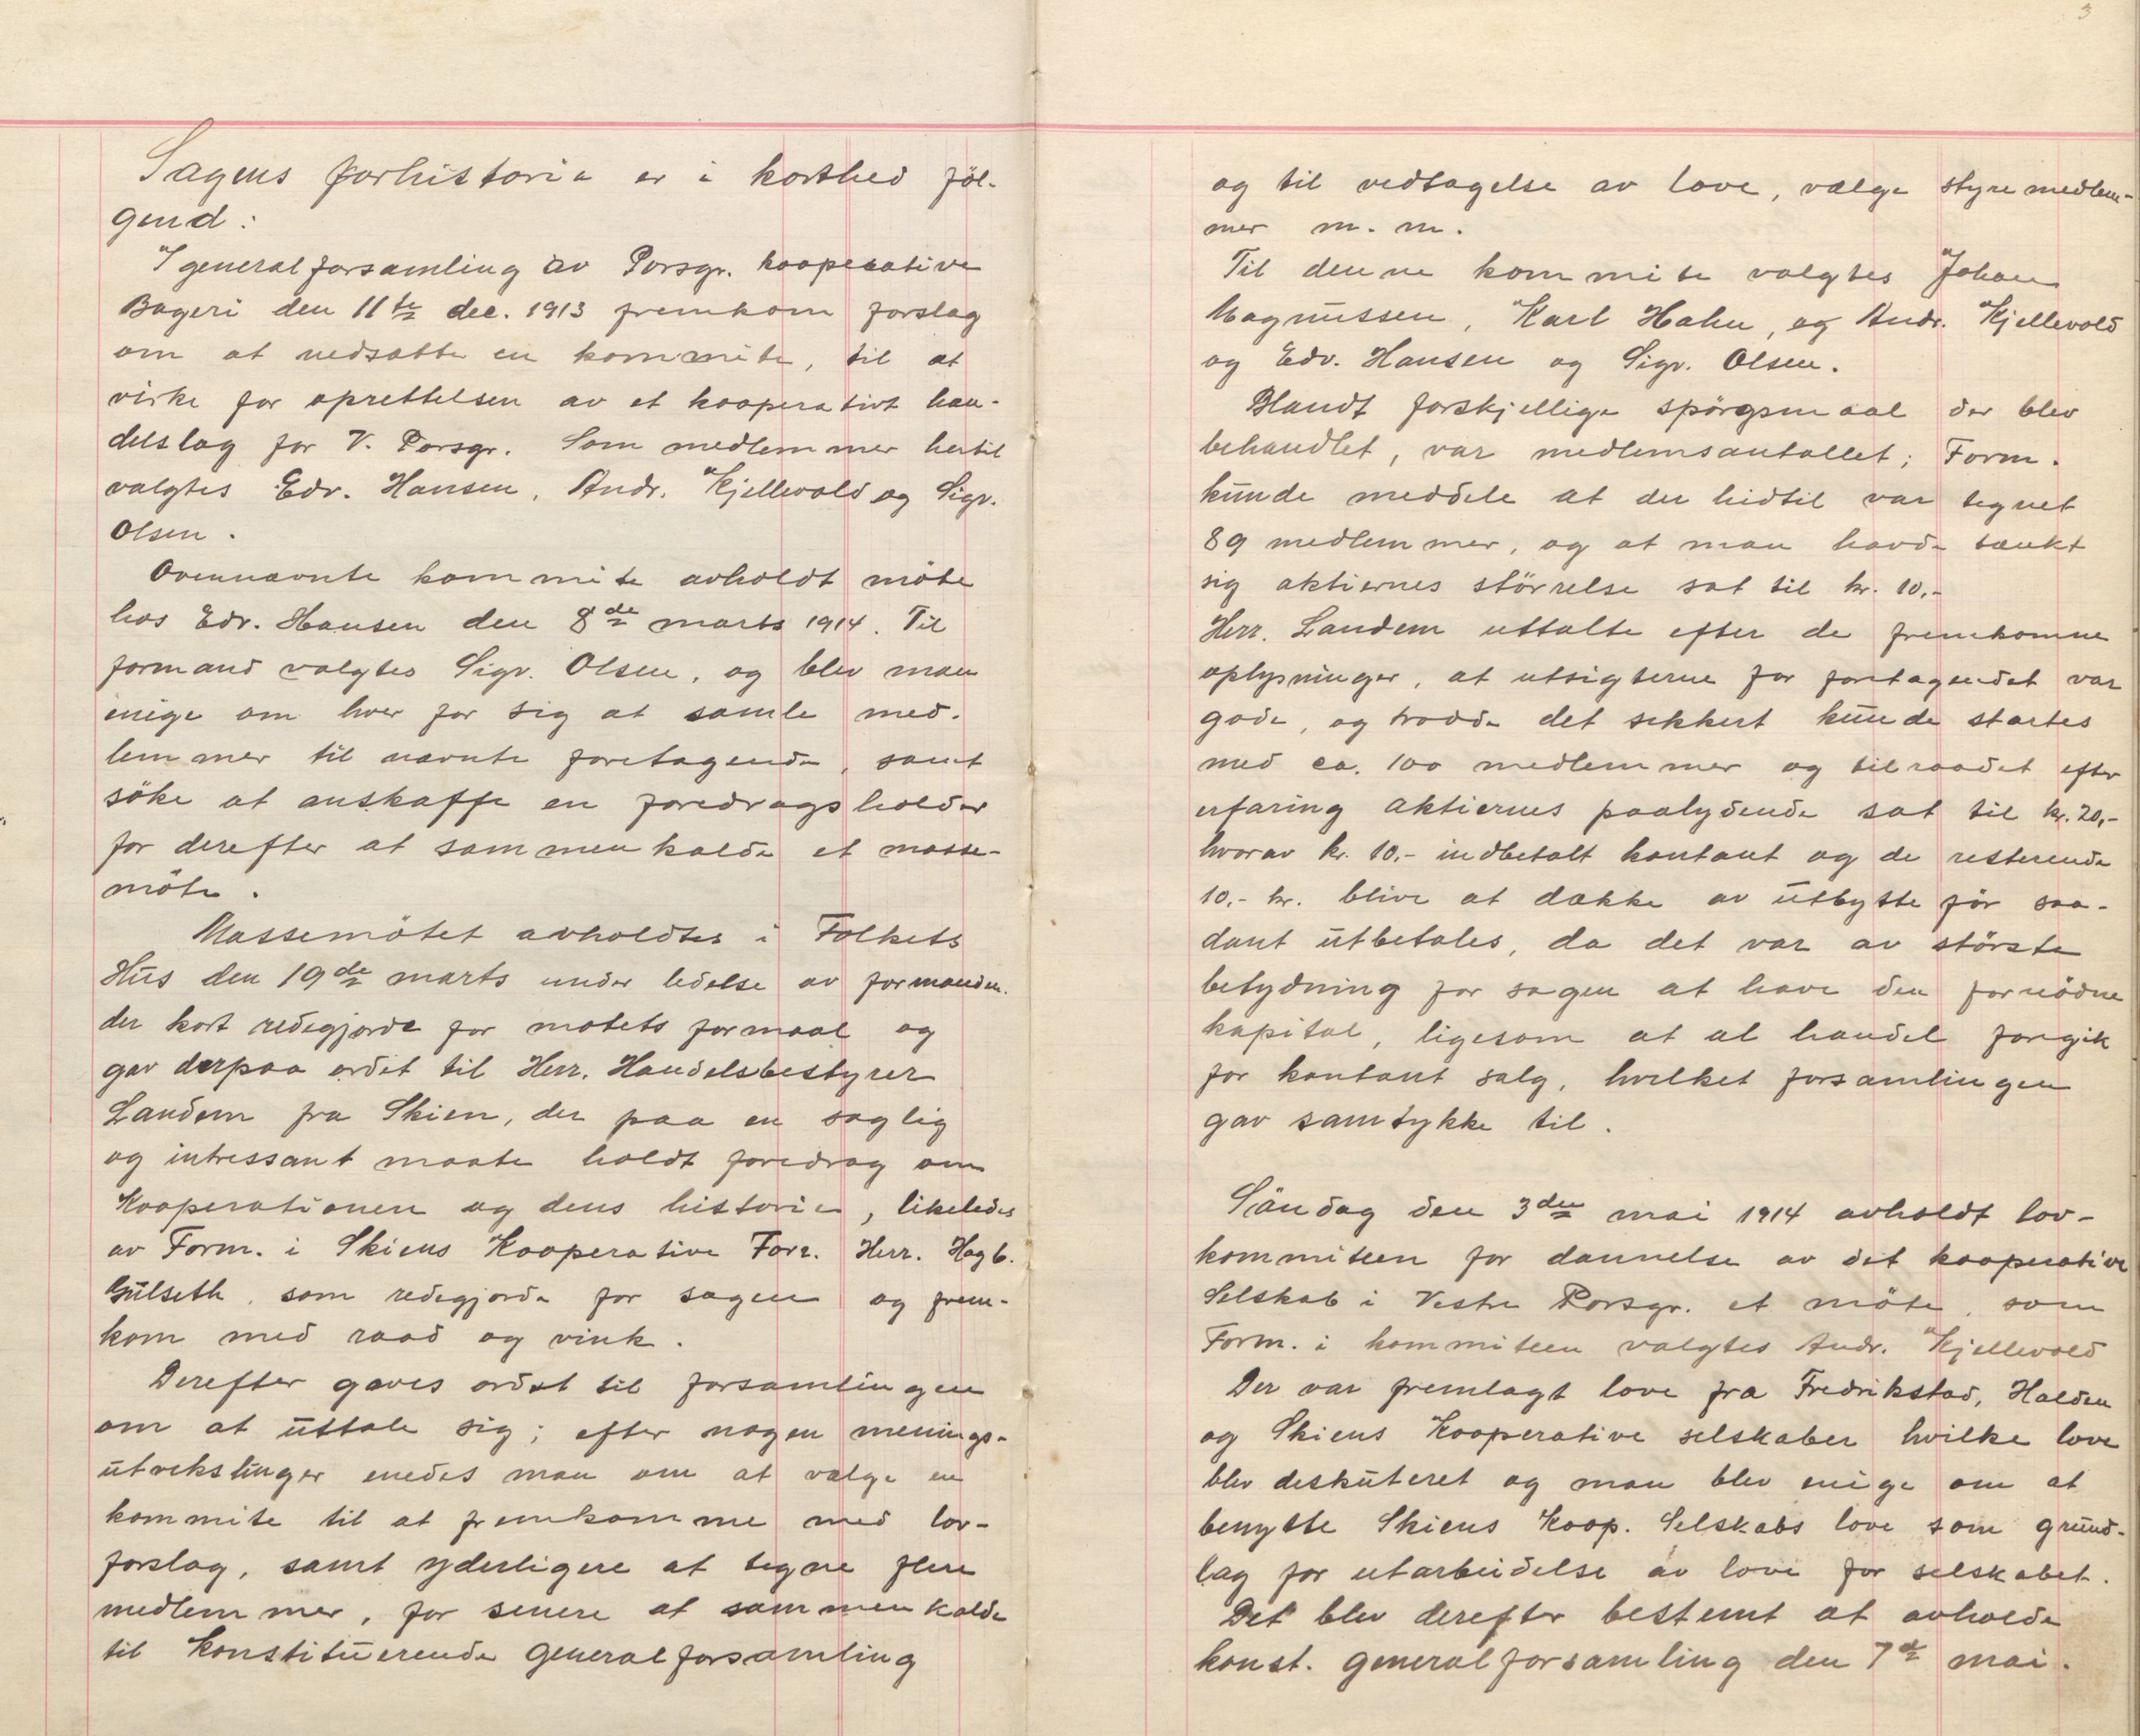 Sagens forhistorie er i korthed föl-
gend:
I generalforsamling av Porsgr. kooperative
Bageri den 11te dec. 1913 fremkom forslag
om at nedsætte en kommite, til at
virke for oprettelsen av et kooperativt han-
delslag for V. Porsgr. Som medlemmer hertil
valgtes Edv. Hansen, Andr. Kjellevold og Sigv.
Olsen.
Ovennævnte kommite avholdt möte
hos Edv. Hansen den 8de marts 1914. Til
formand valgtes Sigv. Olsen, og blev man
enige om hver for sig at samle med-
lemmer til nævnte foretagende, samt
söke at anskaffe en foredragsholder
for derefter at sammenkalde et masse-
möte.
Massemötet avholdtes i Folkets
Hus den 19de marts under ledelse av formanden.
der kort redegjorde for motets formaal og
gav derpaa ordet til Herr. Handelsbestyrer
Landem fra Skien, der paa en saglig
og intressant maate holdt foredrag om
Kooperationen og dens historie, likeledes
av Form. i Skiens Kooperative Forr. Herr. Hagb.
Gulseth, som redegjorde for sagen og frem-
kom med raad og vink.
Derefter gaves ordet til forsamlingen
om at uttale sig; efter nogen menings-
utvekslinger enedes man om at vælge en
kommite til at fremkomme med lov-
forslag, samt yderligere at tegne flere
medlemmer, for senere at sammenkalde
til Konstituerende generalforsamling
3
og til vedtagelse av love, vælge styremedlem-
mer m. m.
Til denne kommite valgtes Johan
Magnussen, Karl Hahn, og Andr. Kjellevold
og Edv. Hansen og Sigv. Olsen.
Blandt forskjellige spörgsmaal der blev
behandlet, var medlemsantallet; Form.
kunde meddele at der hidtil var tegnet
89 medlemmer, og at man havde tænkt
sig aktiernes störrelse sat til kr. 10,-
Herr. Landem uttalte efter de fremkomne
oplysninger, at utsigterne for foretagendet var
gode, og trodde det sikkert kunde startes
med ca. 100 medlemmer og tilraadet efter
erfaring aktiernes paalydende sat til kr. 20,-
hvorav kr. 10,- indbetalt kontant og de resterende
10,- kr. blive at dække av utbytte för saa-
dant utbetales, da det var av störste
betydning for sagen at have den fornödne
kapital, ligesom at al handel foregik
for kontant salg, hvilket forsamlingen
gav samtykke til.
Söndag den 3den mai 1914 avholdt lov-
kommiteen for dannelse av det kooperative
Selskab i Vestre Porsgr. et möte, som
Form. i kommiteen valgtes Andr. Kjellevold
Der var fremlagt love fra Fredrikstad, Halden
og Skiens Kooperative selskaber hvilke love
blev deskuteret og man blev enige om at
benytte Skiens Koop. Selskabs love som grund-
lag for utarbeidelse av love for selskabet.
Det blev derefter bestemt at avholde
konst. generalforsamling den 7de mai.